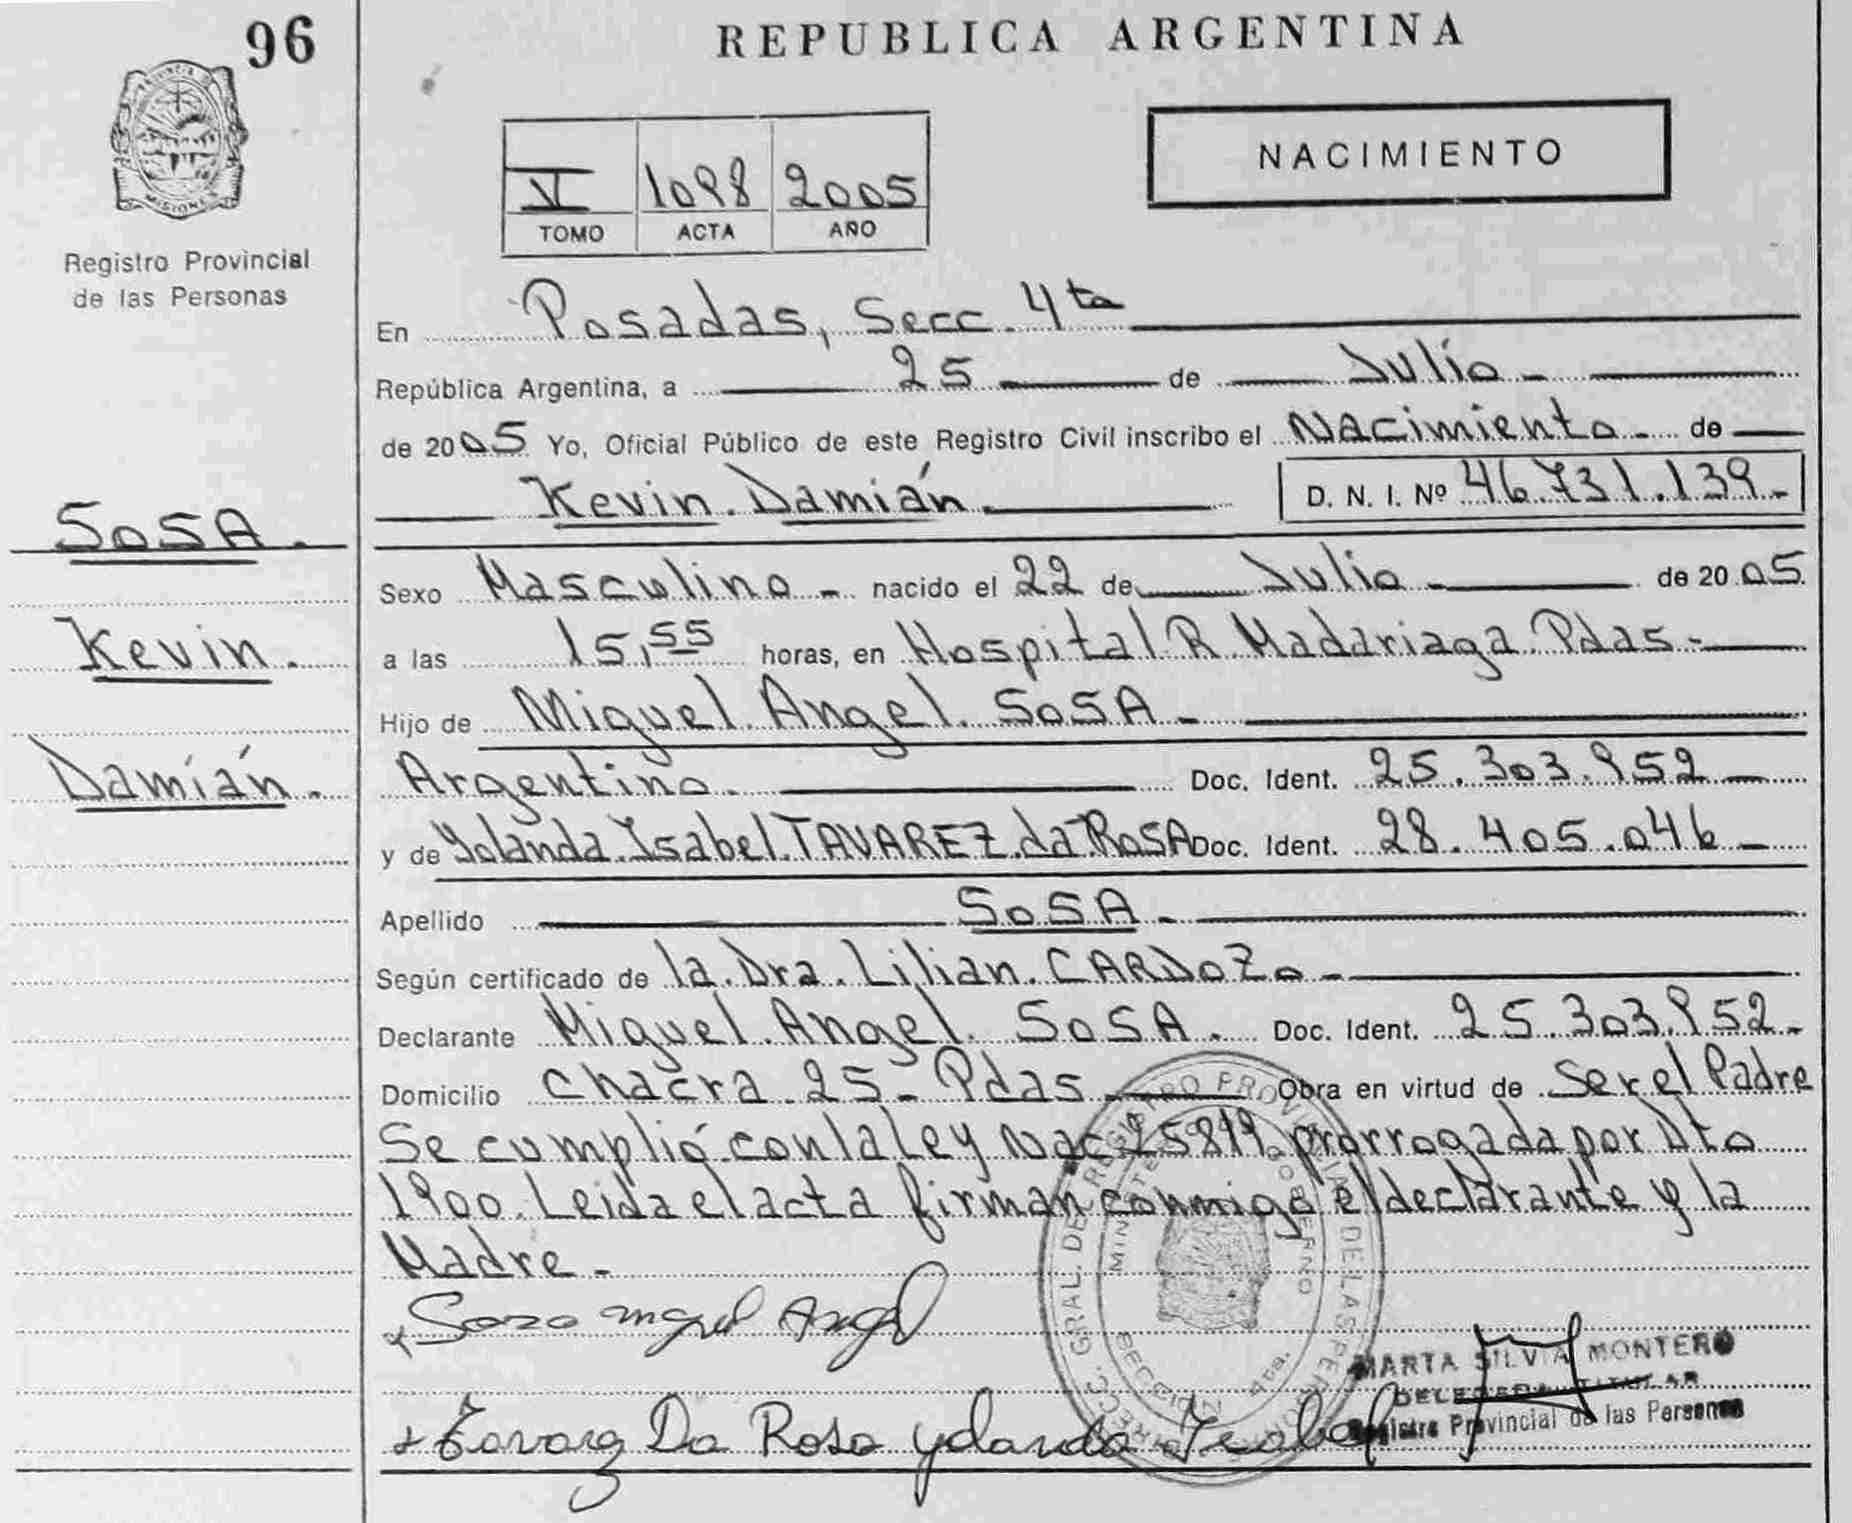 96
REPUBLICA ARGENTINA
PROVINCIA DE
MISIONES
Registro Provincial
de las Personas
NACIMIENTO
VI 1098 2005
TOMO ACTA AÑO
En Posadas, Secc. 4ta
República Argentina, a 25 de Julio -
de 2005 Yo, Oficial Público de este Registro Civil inscribo el Nacimiento - de
Kevin Damián D. N. I. Nº 46.731.139.-
SOSA.
Kevin.
Damián.
Sexo Masculino - nacido el 22 de Julio - de 2005
a las 15,55 horas, en Hospital R. Madariaga Pdas -
Hijo de Miguel Angel SOSA -
Argentino. Doc. Ident. 25.303.952 -
y de Yolanda Ysabel TAVAREZ da ROSA Doc. Ident. 28.405.046 -
Apellido SOSA -
Según certificado de la Dra. Lilian CARDOZO -
Declarante Miguel Angel SOSA. Doc. Ident. 25.303.952 -
Domicilio Chacra 25 - Pdas Obra en virtud de Ser el Padre
Se cumplió con la ley Nac 25819 prorrogada por Dto
1900. Leida el acta firman conmigo el declarante y la
Madre -
Soza Miguel Angel
Tavarez Da Rosa Yolanda Isabel
MARTA SILVIA MONTERO
DELEGADA TITULAR
Registro Provincial de las Personas
DIRECC. GRAL. DE REGISTRO PROVINCIAL DE LAS PERSONAS
GOBIERNO
SECCION 4ta.